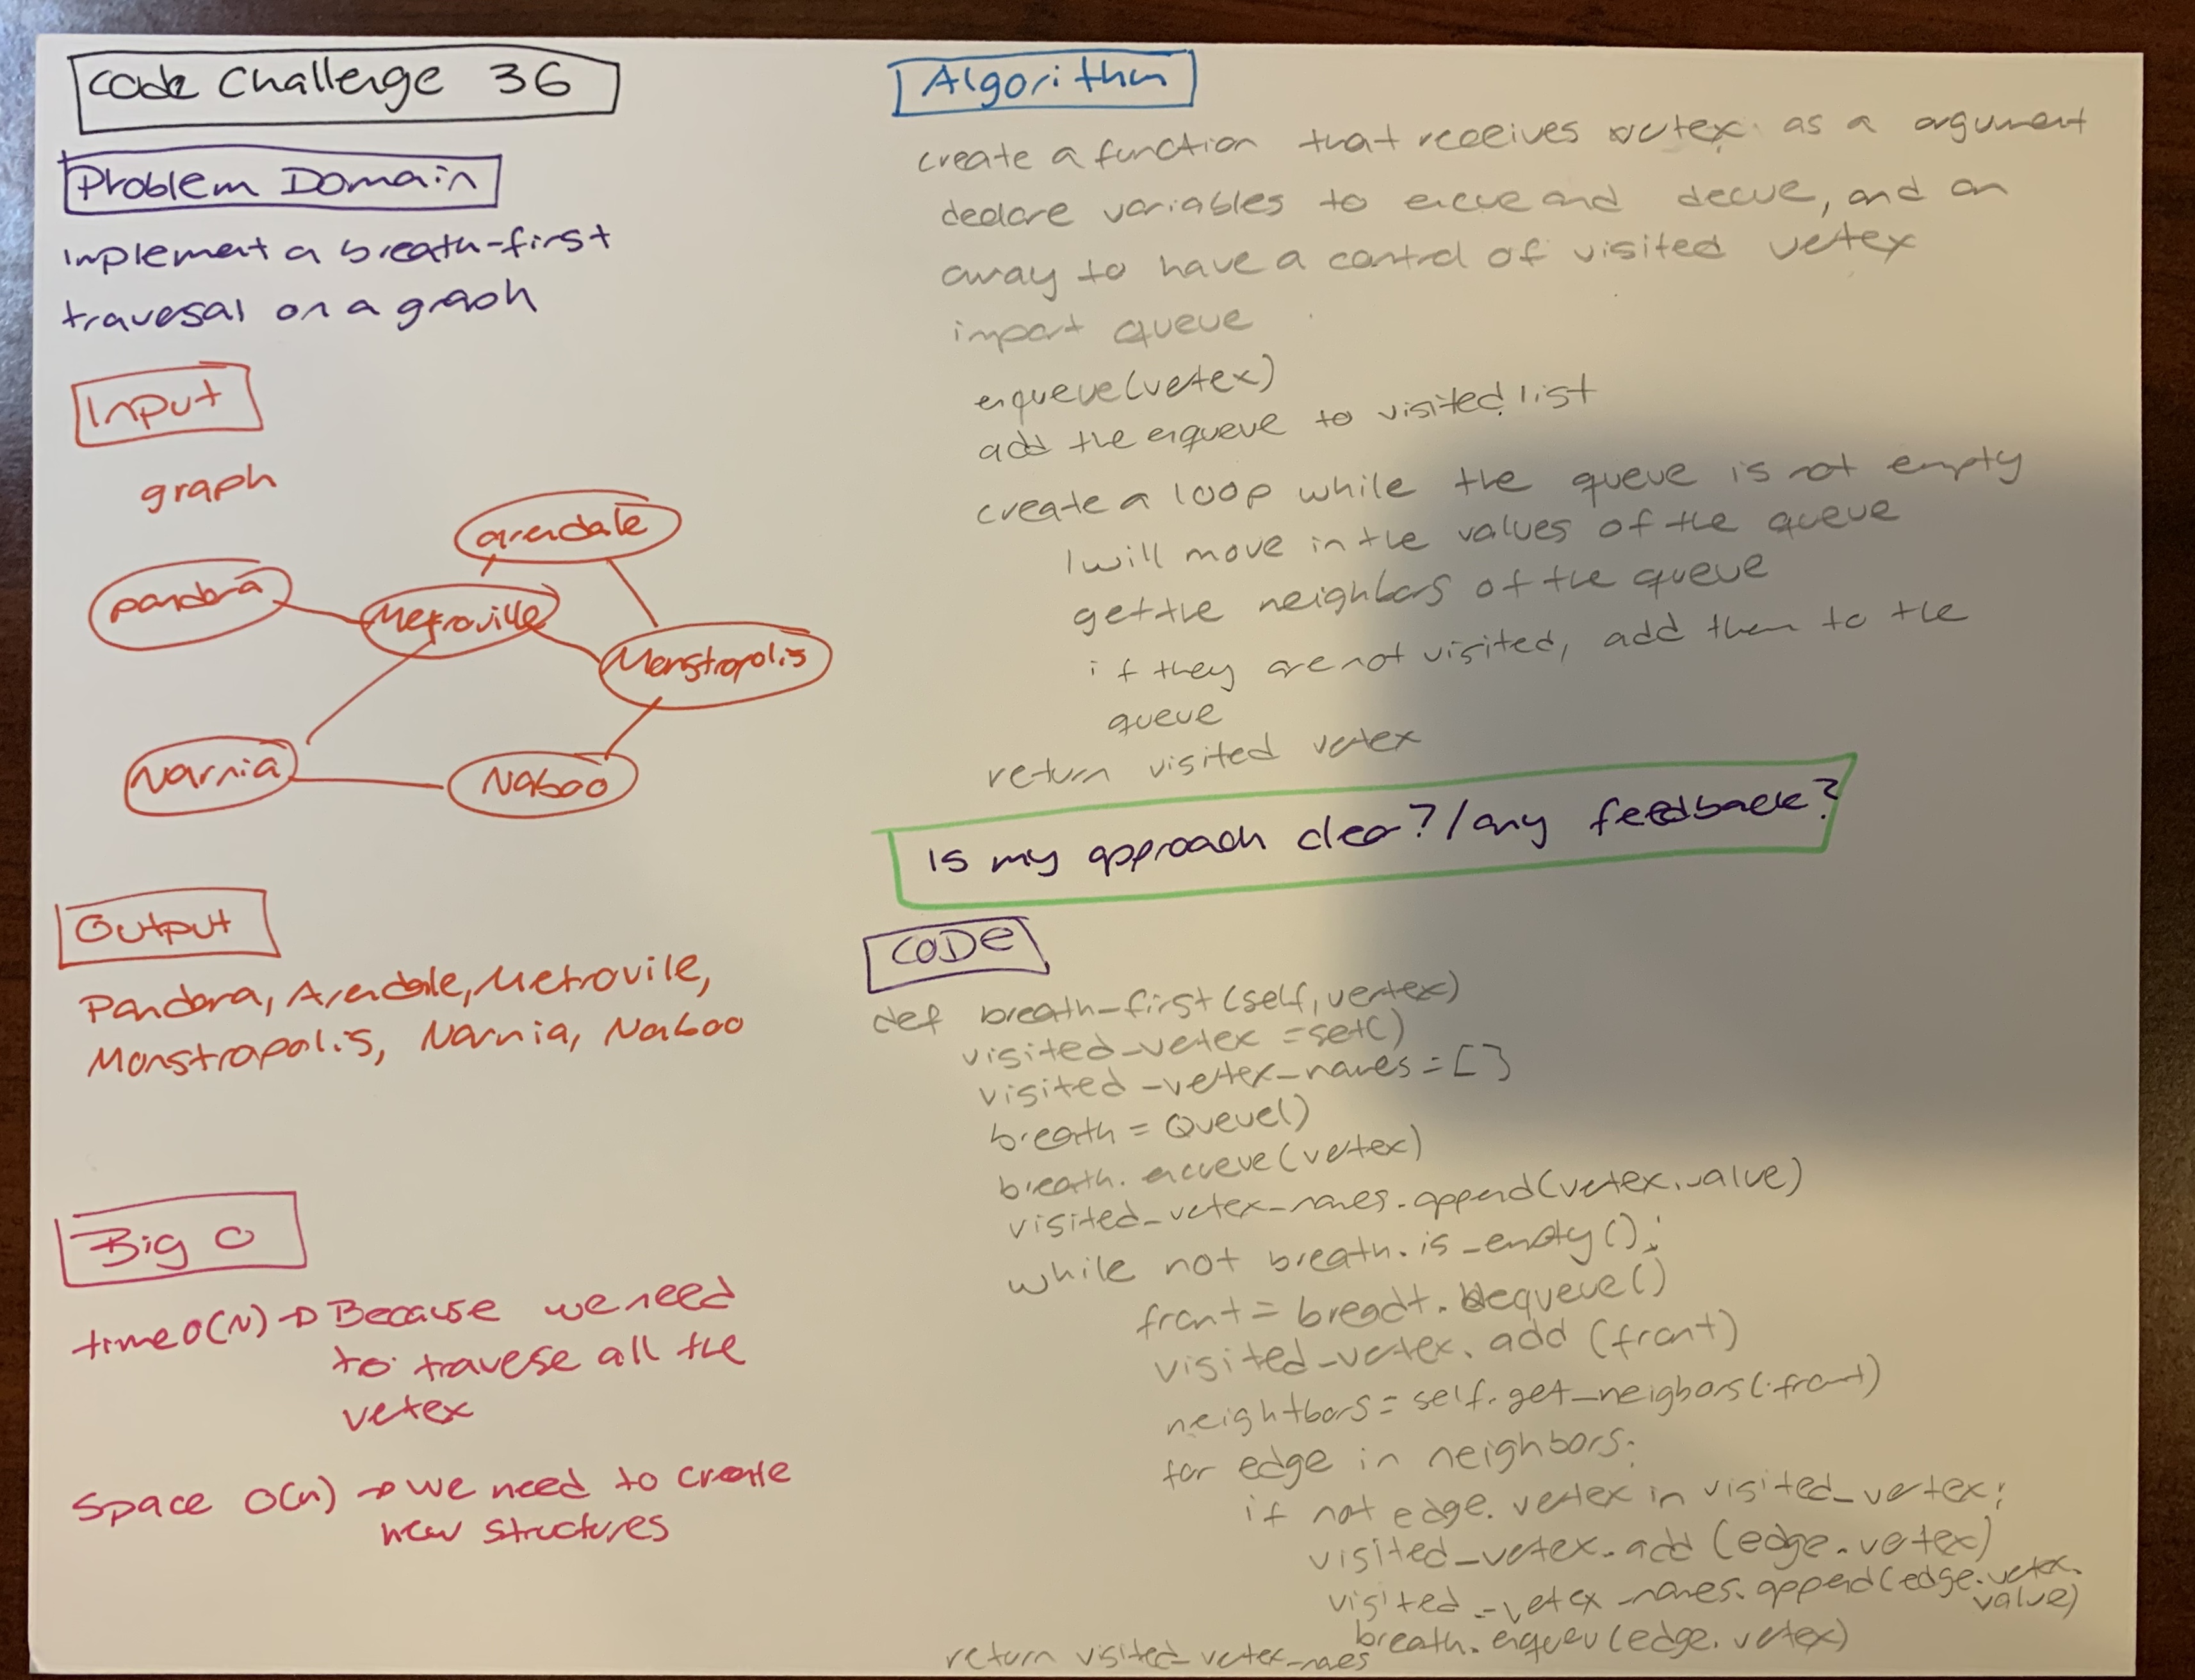 Code Challenge 36
Problem Domain
Implement a breath-first
travesal on a graph
Input
graph
arendale
pandora
Metroville
Monstropolis
Narnia
Naboo
Output
Pandora, Arendale, Metrovile,
Monstrapolis, Narnia, Naboo
Big O
time O(N) → Because we need
to travese all the
vetex
Space O(n) → we need to create
new structures
Algorithm
create a function that receives vetex as a argument
declare variables to encue and decue, and an
array to have a control of visited vetex
import queue
enqueue(vetex)
add the enqueue to visited list
create a loop while the queue is not empty
I will move in the values of the queue
get the neighbors of the queue
if they are not visited, add them to the
queue
return visited vetex
Is my approach clear? / any feedback?
CODE
def breath-first (self, vertex)
visited_vetex = set()
visited_vetex_names = []
breath = Queue()
breath. encueue (vetex)
visited_vetex_names.append(vetex.value)
while not breath.is_empty():
front = breadt. dequeue()
visited_vetex. add (front)
neightbors = self.get_neigbors(front)
for edge in neighbors:
if not edge. vertex in visited_vertex:
visited_vetex.add (edge.vetex)
visited_vetex_names.append(edge.vetex.
value)
breath. enqueu (edge. vetex)
return visited_vetex_names